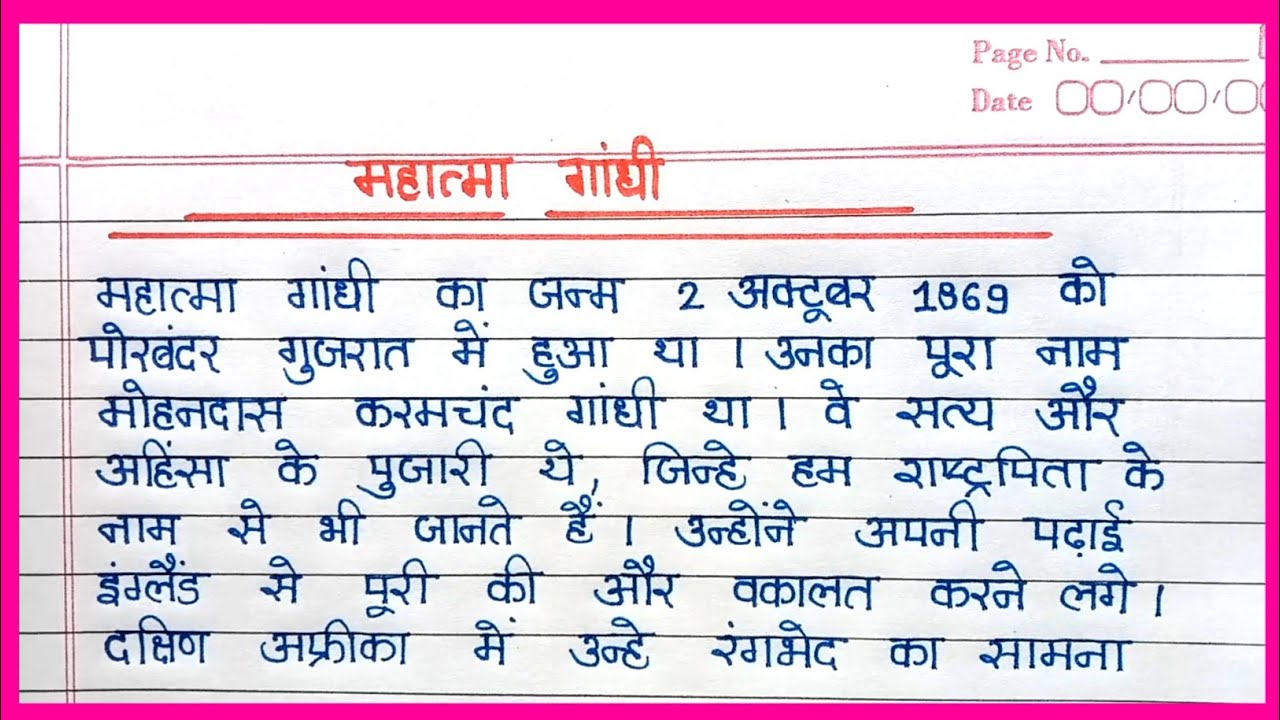 Page No.
Date
महात्मा गांधी
महात्मा गांधी का जन्म 2 अक्टूबर 1869 को
पोरबंदर गुजरात में हुआ था । उनका पूरा नाम
मोहनदास करमचंद गांधी था । वे सत्य और
अहिंसा के पुजारी थे, जिन्हे हम राष्ट्रपिता के
नाम से भी जानते हैं । उन्होंने अपनी पढ़ाई
इंग्लैंड से पूरी की और वकालत करने लगे ।
दक्षिण अफ्रीका में उन्हे रंगभेद का सामना